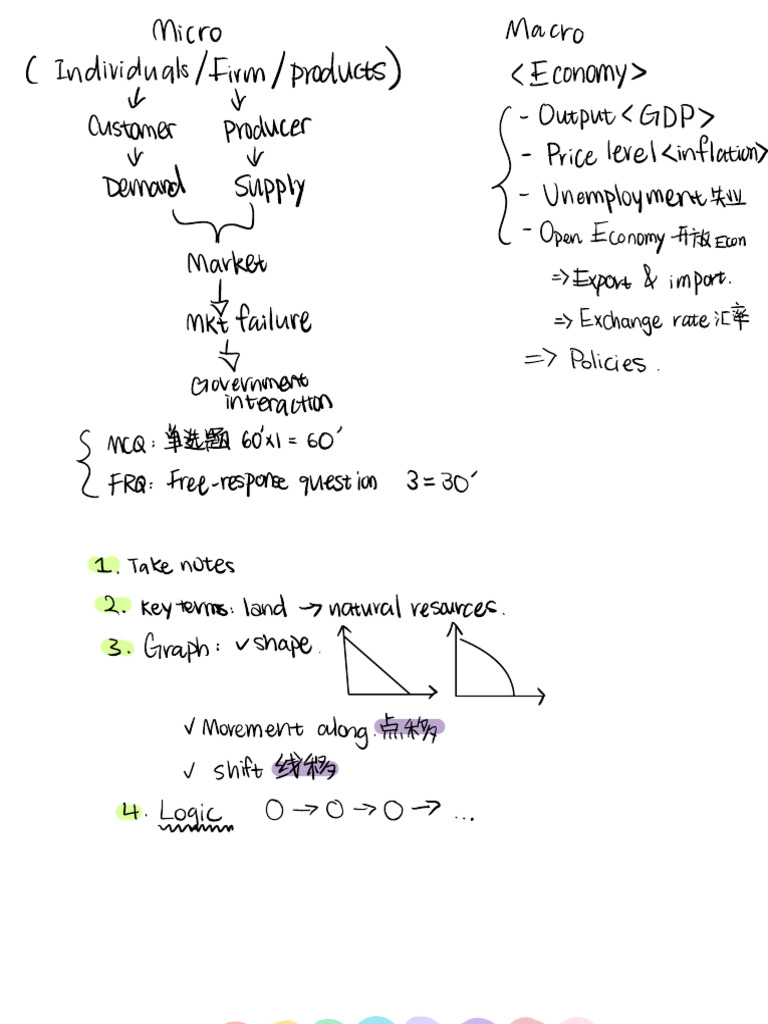 Micro
(Individuals/Firm/products)
Customer Producer
Demand Supply
Market
Mkt failure
Government
interaction
Macro
<Economy>
- Output <GDP>
- Price level <inflation>
- Unemployment 失业
- Open Economy 开放 Econ
⇒ Export & import.
⇒ Exchange rate 汇率
⇒ Policies.
MCQ: 单选题 60'×1 = 60'
FRQ: Free-response question 3 = 30'
1. Take notes
2. Key terms: land → natural resources.
3. Graph: ✓ shape.
✓ Movement along. 点移
✓ shift 线移
4. Logic O → O → O → ...